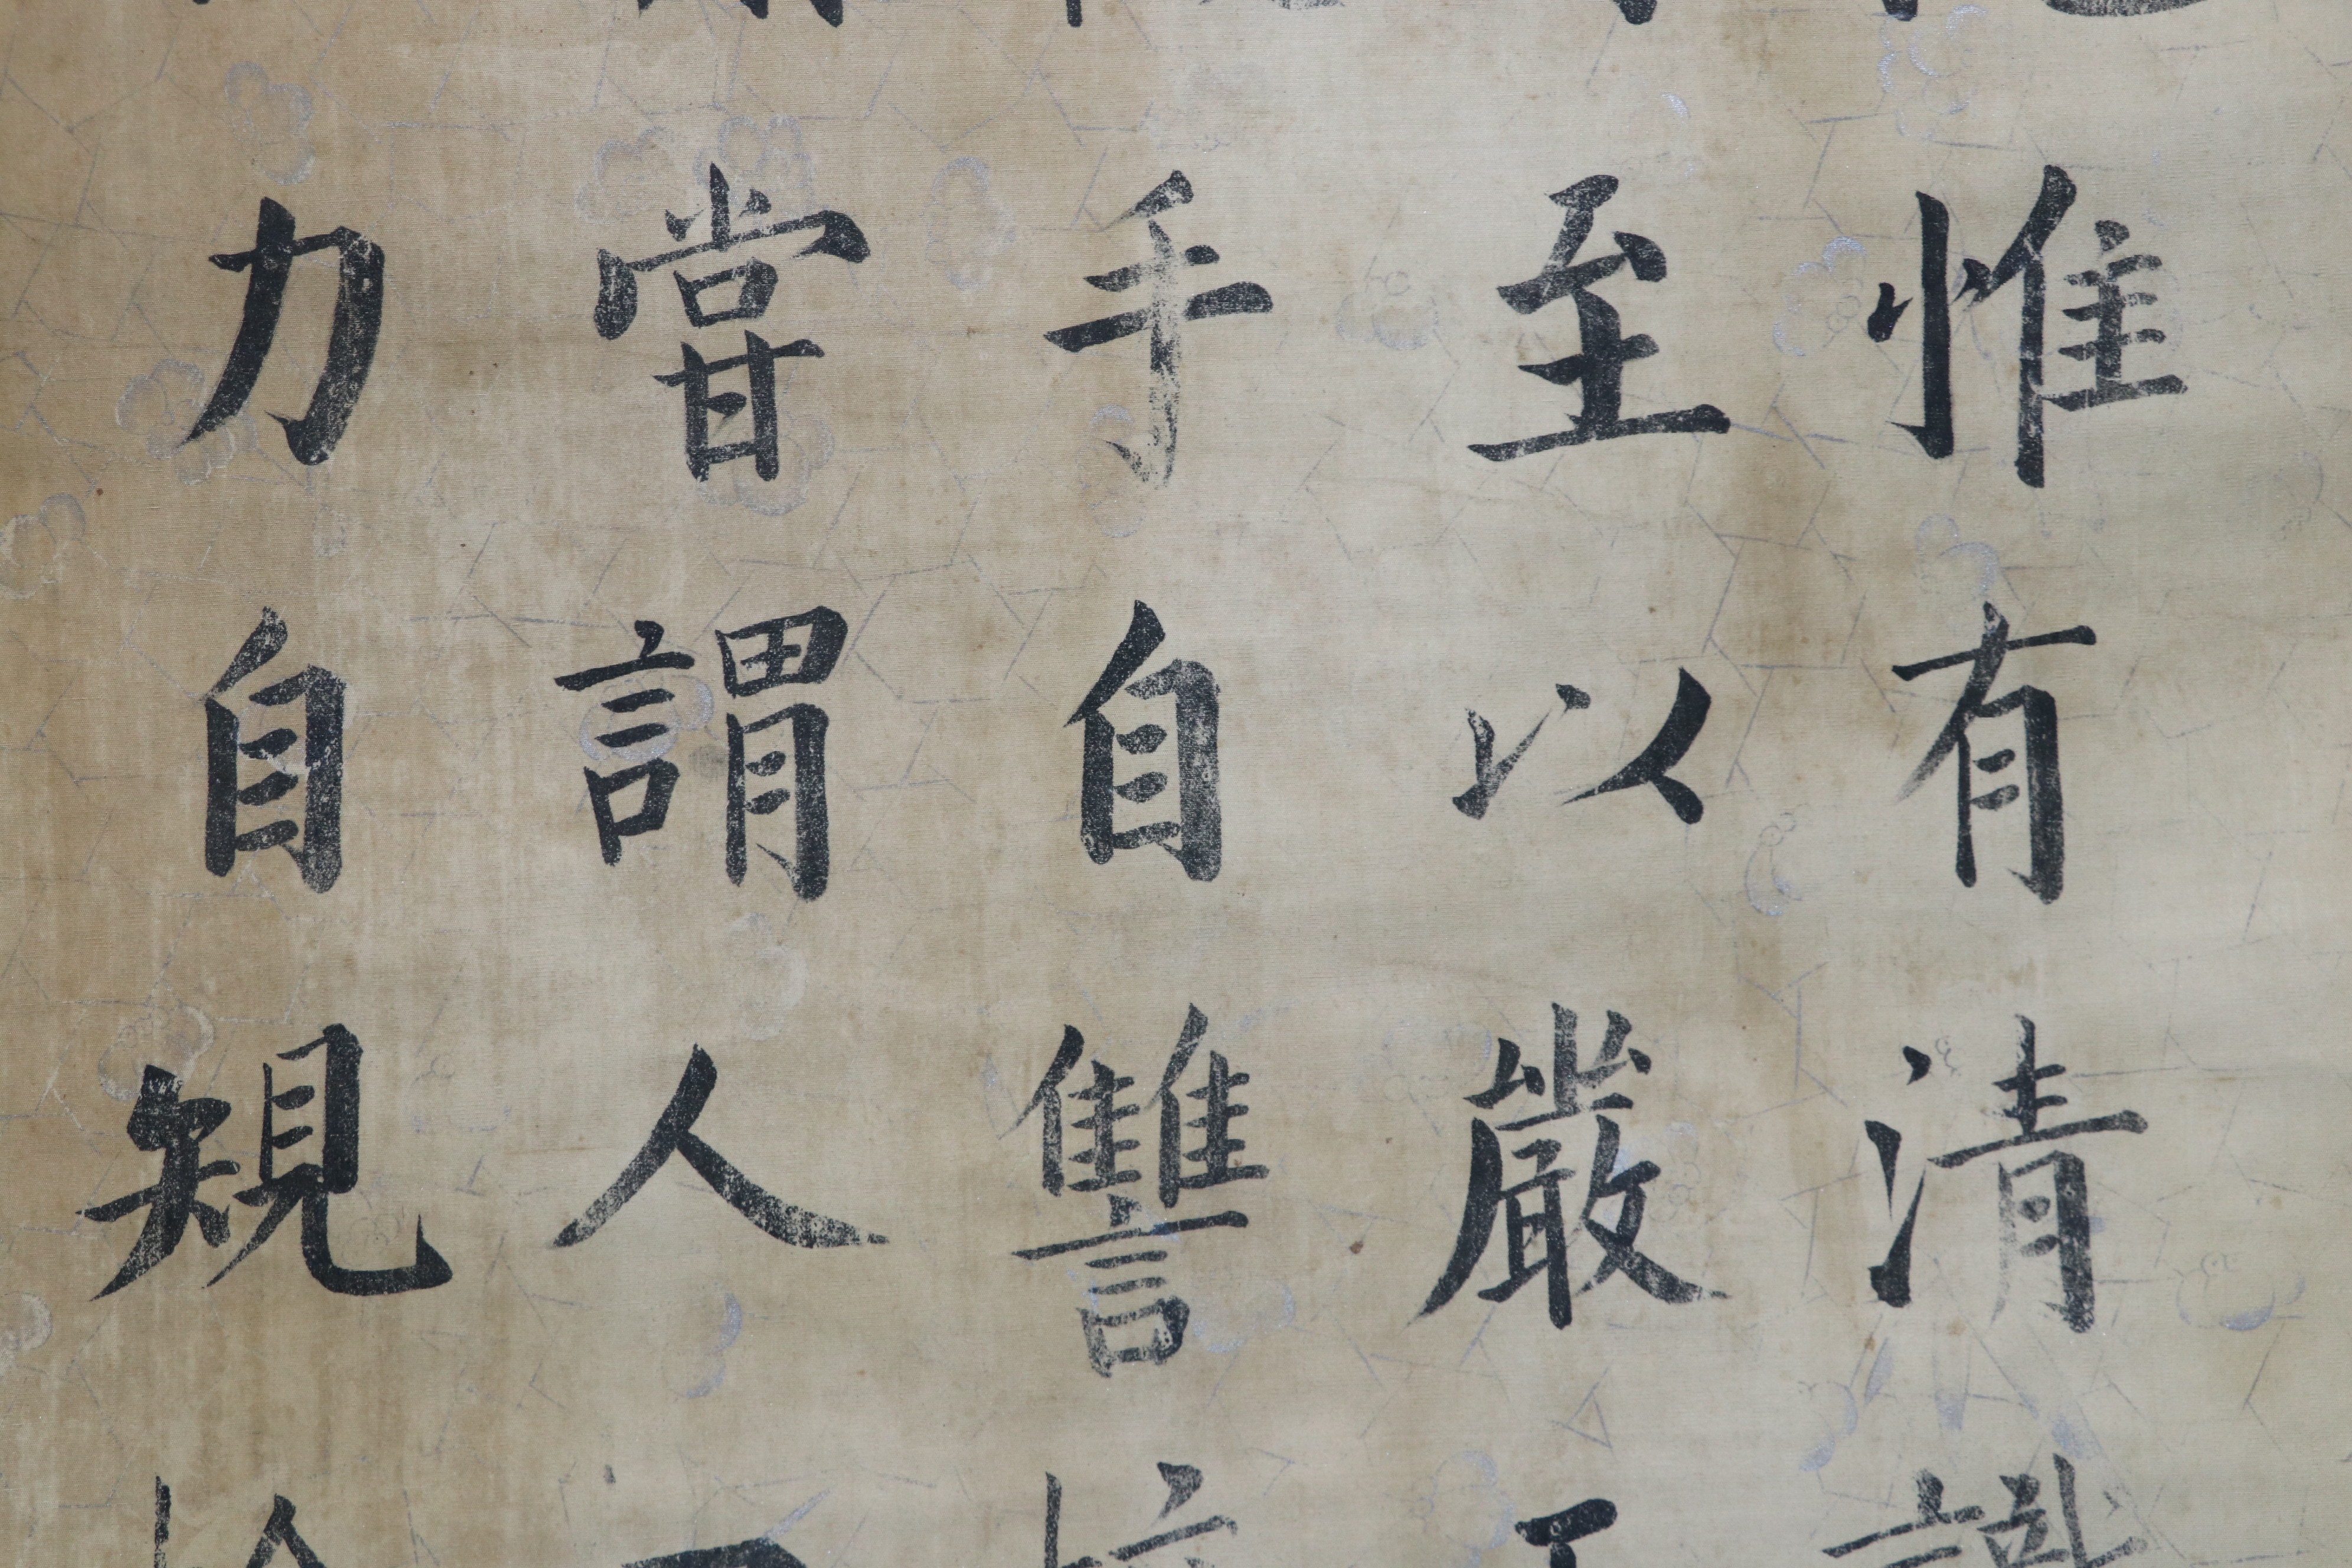 惟有清
至以嚴
手自讐
甞謂人
力自䂓